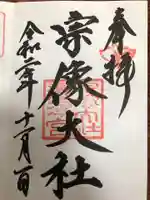 奉拝
宗像大社
令和二年十一月一日